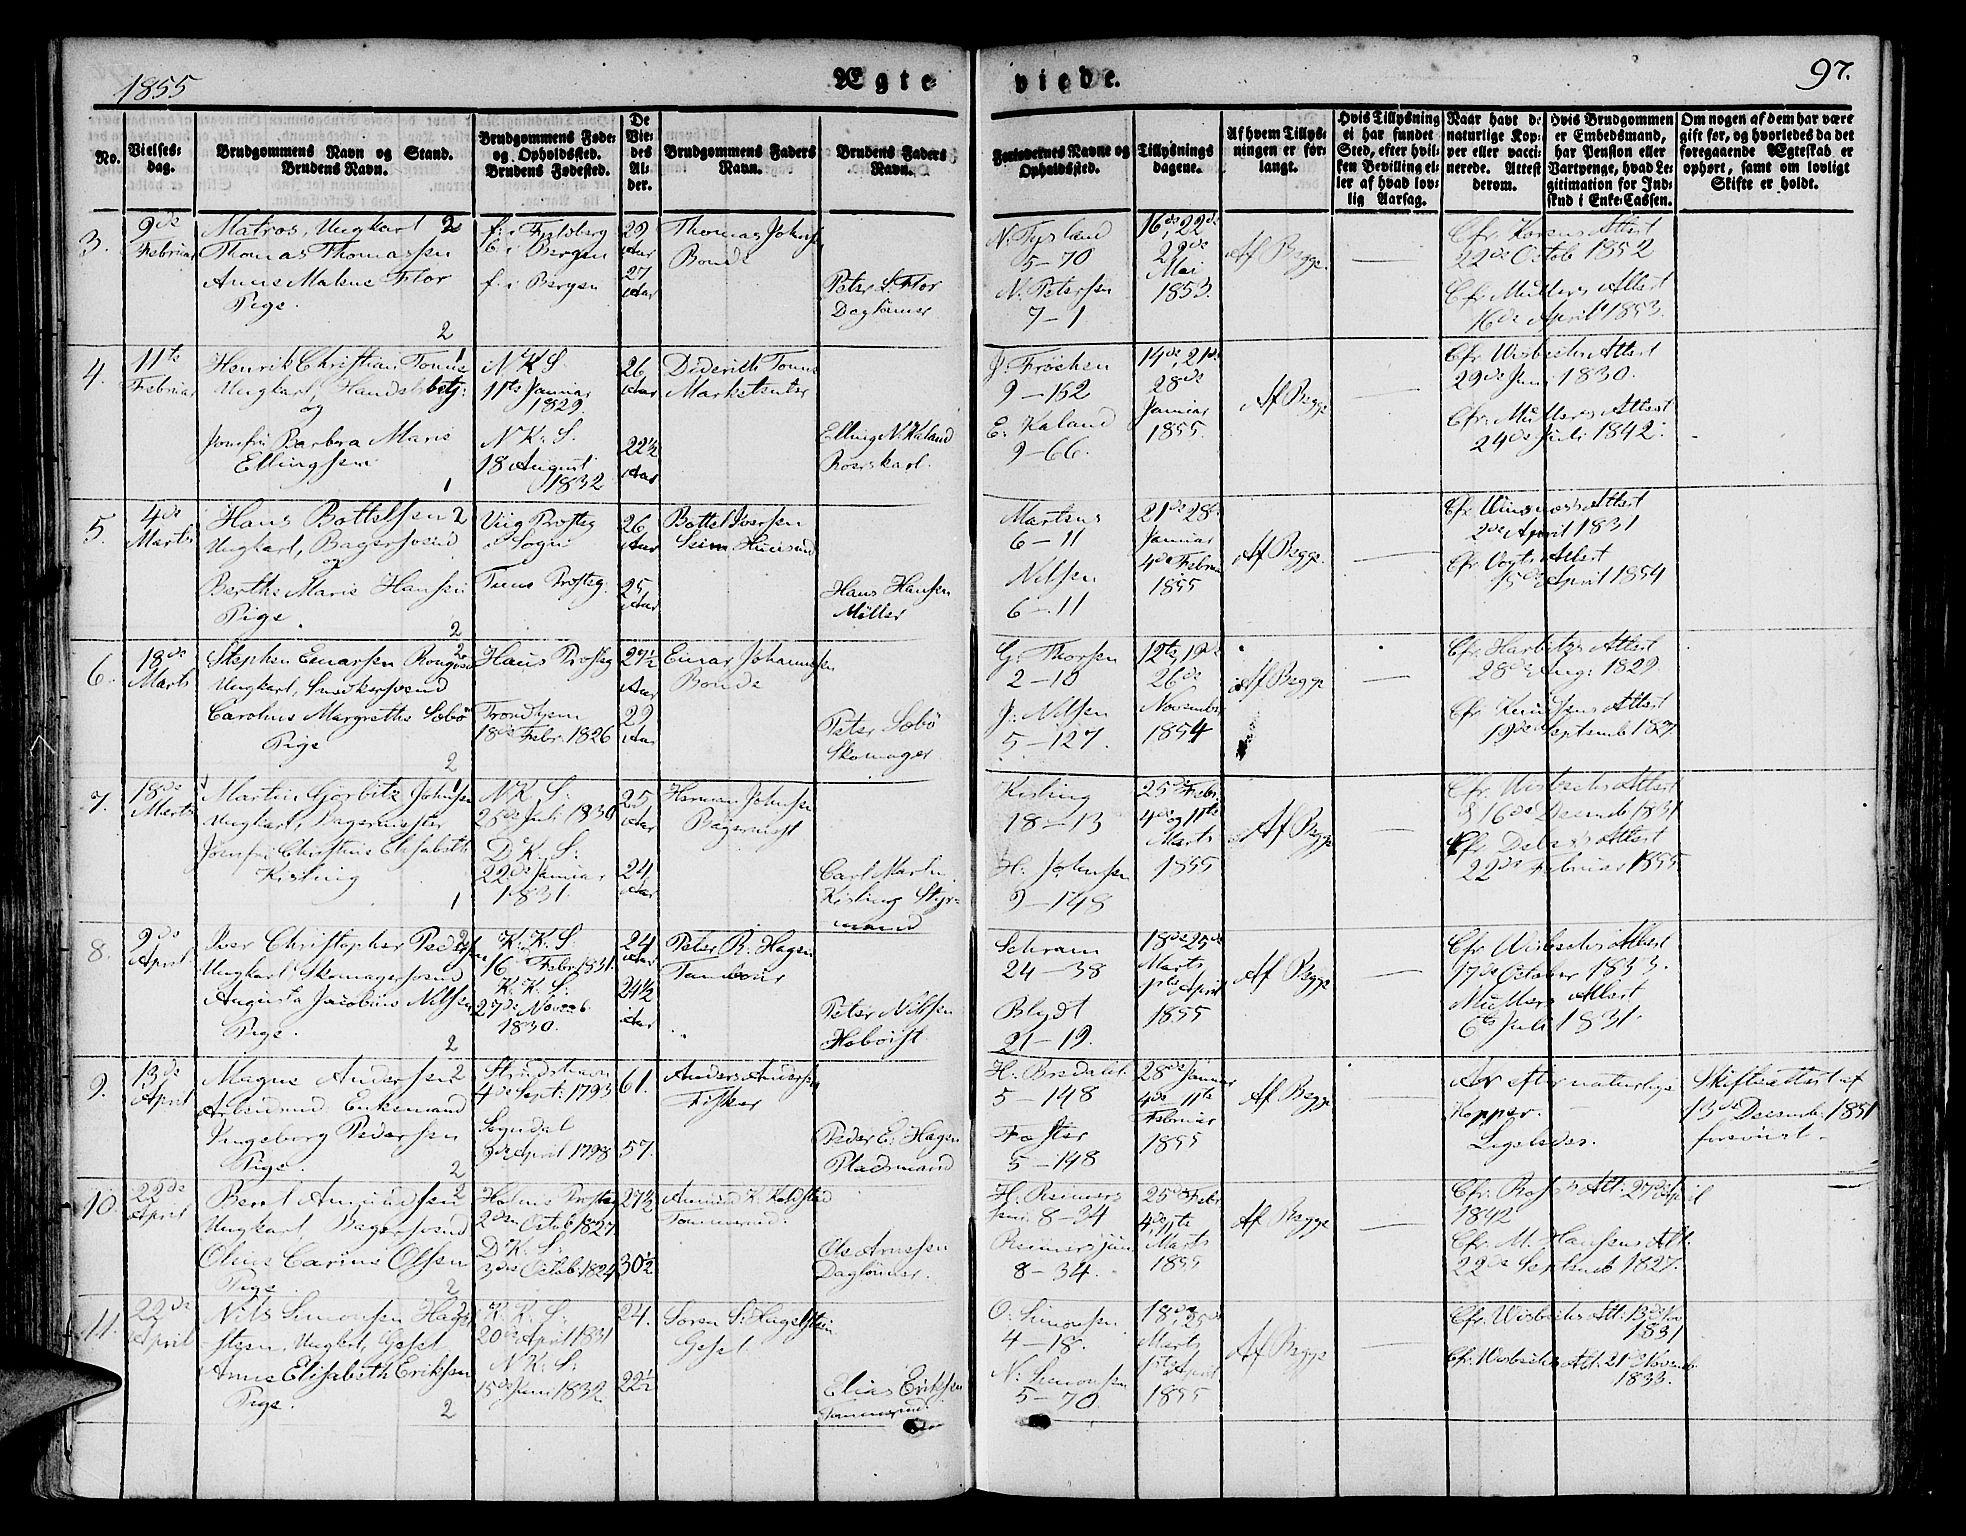 1855
Ægte
viede.
97.
No.
Vielses-
dag.
Brudgommens Navn og Stand.
Brudens Navn.
Brudgommens Føde-
og Opholdssted.
Brudens Fødested.
De
Vie-
des
Al-
der.
Brudgommens Faders
Navn.
Brudens Faders
Navn.
Forlovernes Navne og
Opholdssted.
Tillysnings
dagene.
Af hvem Tillys-
ningen er for-
langt.
Hvis Tillysning
ei har fundet
Sted, efter hvil-
ken Bevilling el-
ler af hvad lov-
lig Aarsag.
Naar havt de
naturlige Kop-
per eller vacci-
nerede. Attest
derom.
Hvis Brudgommen
er Embedsmand,
har Pension eller
Vartpenge, hvad Le-
gitimation for Ind-
skud i Enke-Cassen.
Om nogen af dem har være
gift før, og hvorledes da det
foregaaende Ægteskab er
ophørt, samt om lovligt
Skifte er holdt.
3.
9de
Februar
Matros, Ungkarl 2
Thomas Thomassen
Anne Malene Flor
Pige.
2
b. i Bergen
f. i Bergen
29
Aar
27
Aar
Thomas Johns
Bonde
Peter S. Flor
Daglønner
N. Tysland
5-70
N. Petersen
7-1
16de, 22de
29de
Mai
1853.
Af Begge.
Cfr. Korens Attest
22de Octob 1852
Cfr. Mullers Attest
16de April 1853.
4.
11te
Februar
Henrik Christian Tonns 1
Ungkarl, Handelsbetj:
og
Jomfru Barbera Marie
Ellingsen
1
N K: S.
11te Januar
1829.
N. K: S.
18 August
1832
26
Aar
22½
Aar
Diderich Tonns
Marketenter
Elling N. Kaland
Roerskarl.
J. Frøchen
9-162
E. Kaland
9-66.
14de, 21de
28de
Januar
1855.
Af Begge
Cfr. Wisbechs Attest
29de Juni 1830.
Cfr. Mullers Attest
24de Juli 1842.
5.
4de
Marts
Hans Bottelsen 2
Ungkarl, Bagersvend
og
Berthe Marie Hansen
Pige.
2
Viig Prosteg
i Sogn
Prosteg.
26
Aar
25
Aar
Bottel Iversen
Seim Huusmd
Hans Hansen
Møller
Martens
6-11
Nilsen
6-11
21de 28de
Januar
4de Februar
1855
Af Begge.
2de April 1831
Cfr. Vogts Attest
15de April 1854
6.
18de
Marts
Stephen Einarsen 2
Ungkarl, Snedkersvend
Caroline Margrethe Sebö
Pige
2
Haus Prosteg
Trondhjem
18de Febr. 1826
27½
Aar
29
Aar
Einar Johannessen
Bonde
Peter Sebö
Skomager
G. Thorsen
2-10
J. Nilsen
5-127.
12te, 19de
26de
November
1854
Af Begge
Cfr. Harbitz's Attest
28de Aug: 1829
Cfr. Knudsens Attest
19de Septemb 1827.
7.
18de
Marts
Martin Görbitz Johnsen 1
Ungkarl, Bagermester
Jomfru Christine Elisabeth
Kisling
1
N K: S:
25de Juli 1830
D. K: S:
22de Januar
1831.
25
Aar
24
Aar
Herman Johnsen
Bagermest
Carl Martin
Kisling Styr-
mand
Kisling
18-13
H. Johnsen
9-148
25de Febr
4de og 11te
Marts
1855
Af Begge
Cfr. Wisbechs Attest
16de Decemb 1831
Attest
22de Februar 1855
8.
9de
April
Iver Christopher Pedersen 2
Ungkarl Skomagersvend
Augusta Jacobine Nilsen
Pige.
2
K: K: S:
16 Febr 1831.
K: K: S:
27de Novemb.
1830.
24
Aar
24½
Aar
Peter R. Hagen
Tambour
Peter Nilsen
Hoboist
Schram
24-38
Blydt
21-19.
18de 25de
Marts
1ste April
1855
Af Begge
Cfr. Wisbechs Attest
17de October 1833.
Mullers Attest
6te Juli 1831.
9.
13de
April
Magne Andersen 2
Arbeidsmd. Enkemand
Ingeborg Pedersen
Pige.
2
4de Septr: 1793
Sogndal
3de April 1798
61.
57.
Anders Andersen
Fisker
Peder E. Hagen
Pladsmand
H. Bredal
5-148
Foster
5-148
28de Januar
4de 11te
Februar
1855
Af Begge
Ar efter naturlige
Kopper.
Ligeledes.
Skifteattest af
13de Decemb. 1851
forevist.
10.
22de
April
Bent Amundsen 2
Ungkarl Bagersvend
Oline Carine Olsen
Pige.
2
Holme Prosteg
2den Octob 1827.
D K: S:
3die Octob. 1824
27½
30½
Amund K. Koldsted
Tømmermd.
Ole Arnesen
Daglønner.
H. Reimers
sen: 8-34
Reimers jun
8-34.
25de Febr
4de, 11te
Marts
1855
Af Begge
Att. 27de April
1842
Cfr. M. Hansens Att.
22de Septemb 1827.
11.
22de
April
Nils Simonsen Hagel- 2
steen, Ungkarl, Gesel
Anne Elisabeth Eriksen
Pige.
2
K. K: S:
20de April 1831
N. K: S:
15de Juni 1832.
24.
22½
Søren S. Hagelsteen
Gesel
Elias Eriksen
Tømmermd.
O. Simonsen
4-18.
N. Simonsen
5-70.
18de, 25de
Marts
1ste April
1855
Af Begge
Cfr. Wisbechs Att. 13de Nov
1831
Cfr. Wisbechs Att. 21de Novemb
1833.